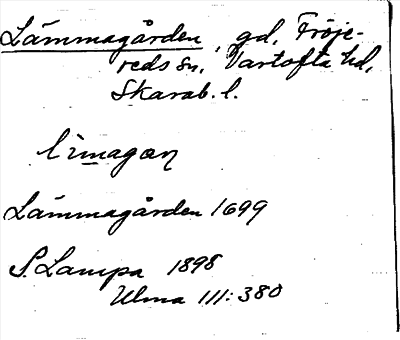 Lämmagården, gd, Fröje-
reds sn, Vartofta hd,
Skarab. l.
limagan
Lämmagården 1699
S. Lampa 1898
Ulma 111:380